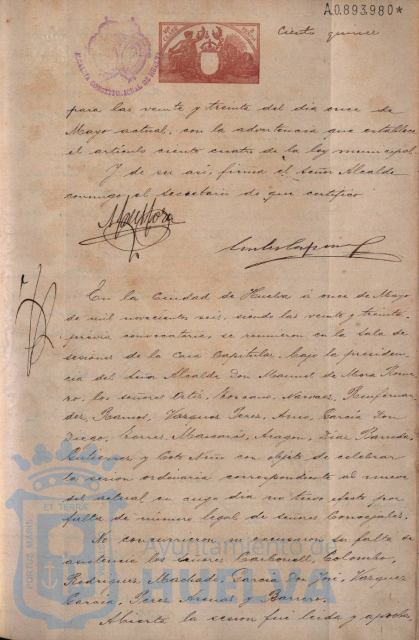 A.0.893.980*
Ciento quince
ALCALDIA CONSTITUCIONAL DE HUELVA
para las veinte y treinta del dia once de
Mayo actual, con la advertencia que establece
el articulo ciento cuatro de la ley municipal.
Y de ser asi, firma el Señor Alcalde
conmigo el secretario de que certifico
En la Ciudad de Huelva á once de Mayo
de mil novecientos seis, siendo las veinte y treinta
previa convocatoria, se reunieron en la sala de
sesiones de la Casa Capitular, bajo la presiden-
cia del Señor Alcalde Don Manuel de Mora Rome-
ro, los señores Ortiz, Narvaez,
Ramos, Vazquez Perez, García Don
Diego, Torres Aragon, Diaz
Gutierrez y con objeto de celebrar
la sesion ordinaria correspondiente al nueve
del actual en cuyo dia no tuvo efecto por
falta de número legal de señores Concejales.
No concurrieron ni excusaron su falta de
asistencia los señores Carbonell, Colombo,
Rodriguez, Machado, García Don José, Vazquez
García, Perez y Barrero.
Abierta la sesion fue leida y aproba
PORTUS MARIS ET TERRAE
Ayuntamiento de
HUELVA